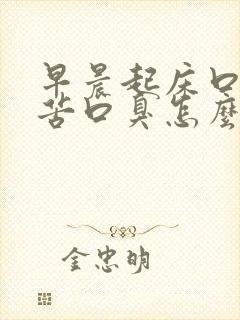 早晨起床口
苦口臭怎麼
金忠明